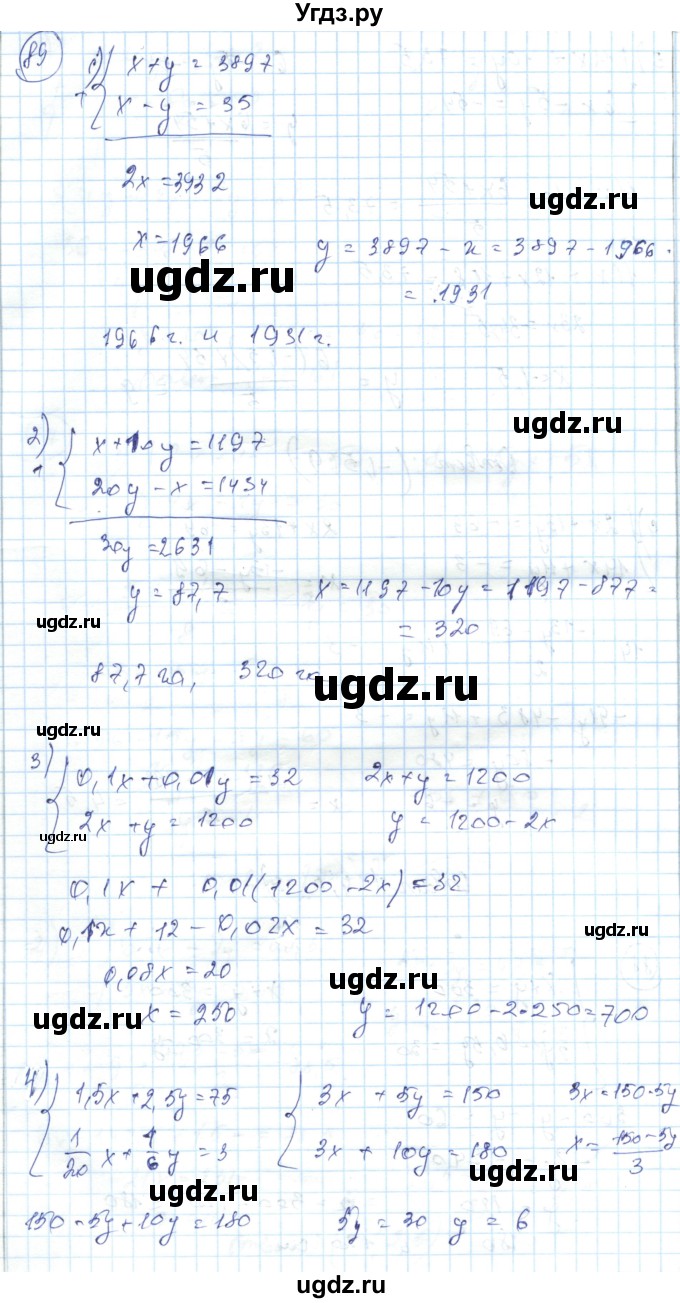 Угдз.ру
89
1) { x + y = 3897
+ x - y = 35
ugdz.ru
2x = 3932
ugdz.ru
x = 1966 y = 3897 - x = 3897 - 1966 =
ugdz.ru
= 1931
1966 г. и 1931 г.
ugdz.ru
2) { x + 10y = 1197
20y - x = 1434
ugdz.ru
30y = 2631
y = 87,7 x = 1197 - 10y = 1197 - 877 =
ugdz.ru
= 320
87,7 га, 320 га
ugdz.ru
ugdz.ru
3) { 0,1x + 0,01y = 32 2x + y = 1200
ugdz.ru
2x + y = 1200 y = 1200 - 2x
0,1x + 0,01(1200 - 2x) = 32
0,1x + 12 - 0,02x = 32
ugdz.ru
0,08x = 20
ugdz.ru
ugdz.ru
x = 250 y = 1200 - 2·250 = 700
4) { 1,5x + 2,5y = 75 { 3x + 5y = 150 3x = 150 - 5y
1/20 x + 1/6 y = 3 3x + 10y = 180 x = (150 - 5y)/3
ugdz.ru
ugdz.ru
150 - 5y + 10y = 180 5y = 30 y = 6
ugdz.ru
ugdz.ru